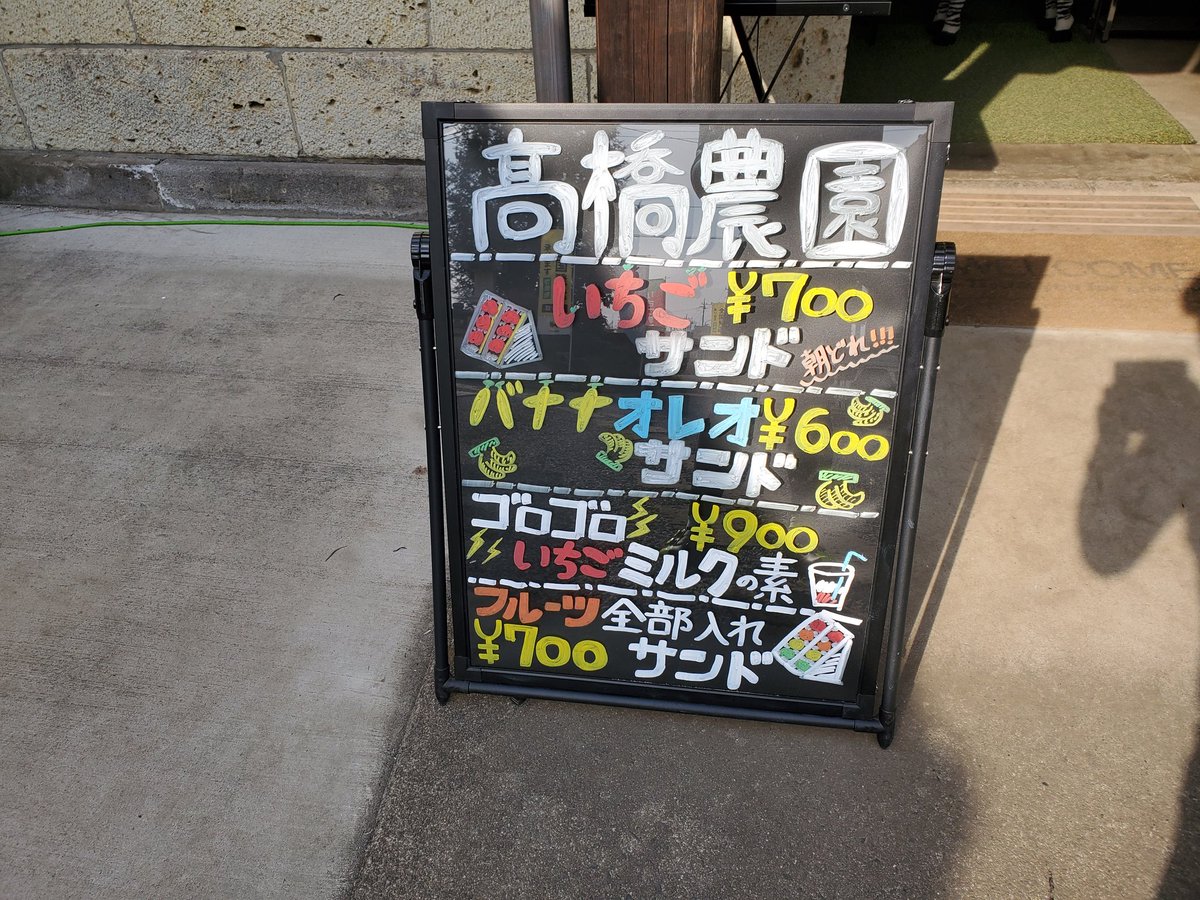 髙橋農園
いちご ¥700
サンド 朝どれ!!!
バナナオレオ ¥600
サンド
ゴロゴロ ¥900
いちごミルクの素
フルーツ全部入れ
¥700 サンド